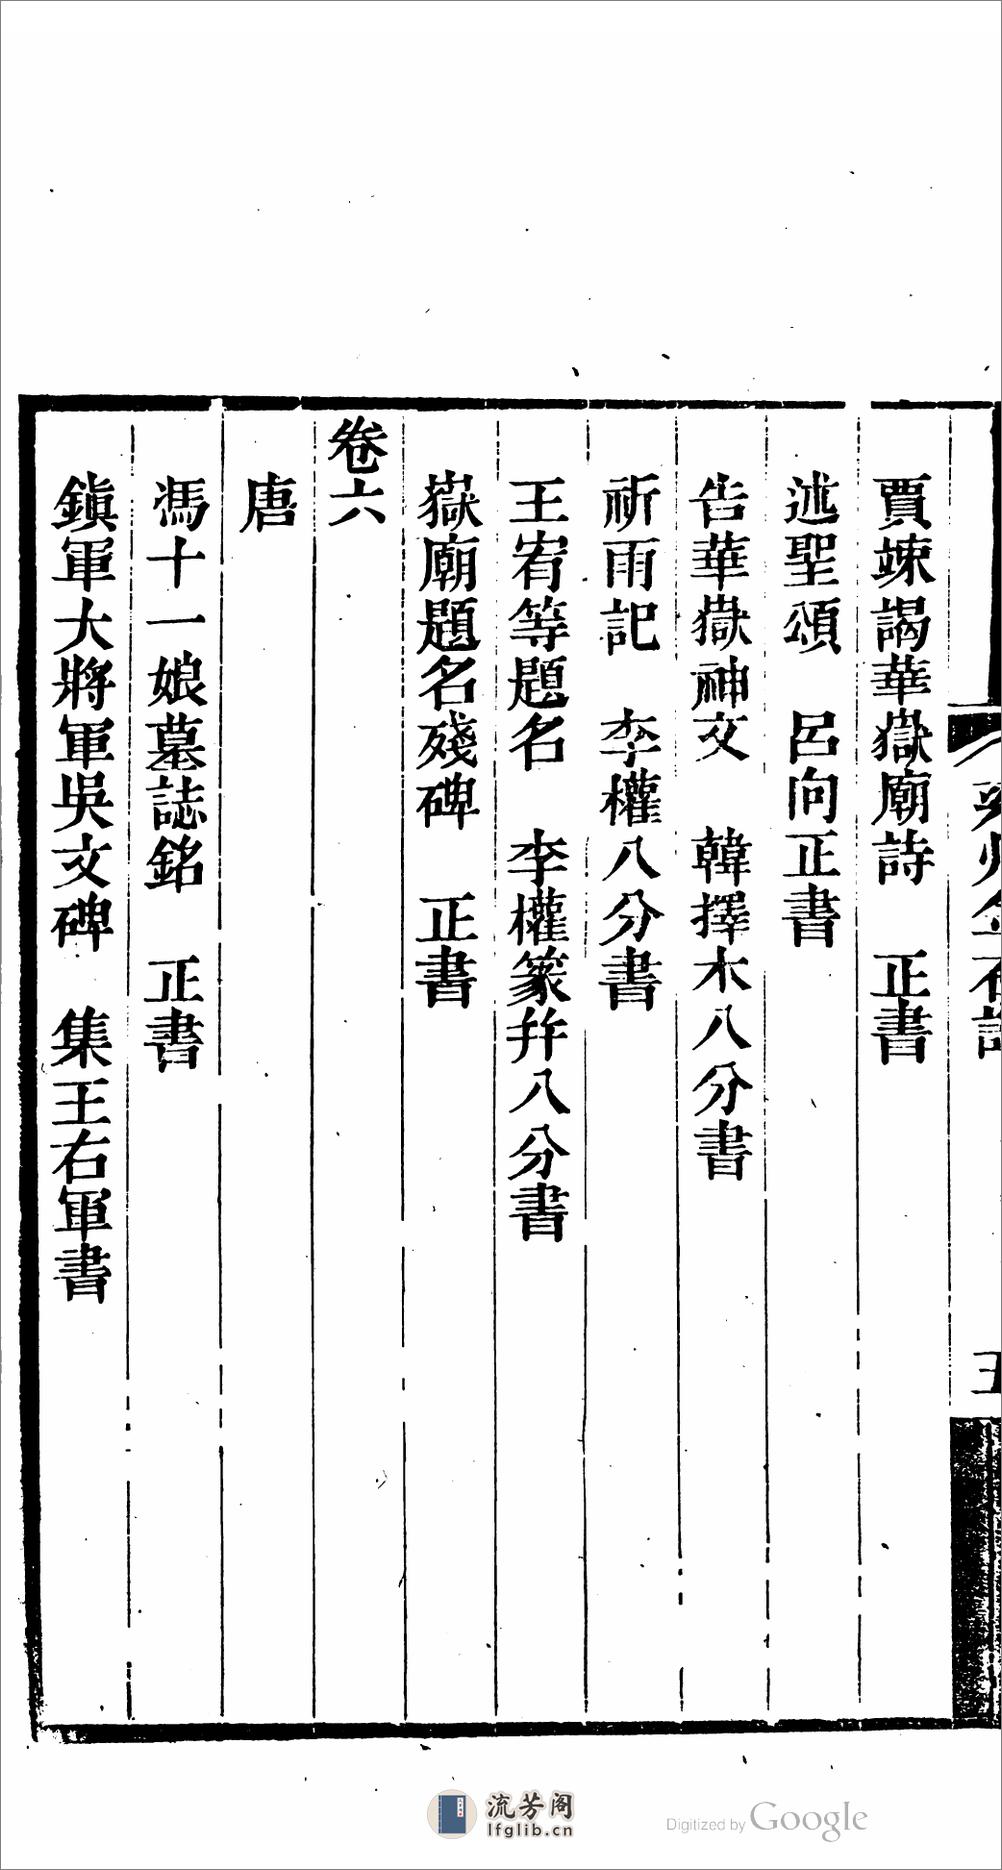 賈竦謁華嶽廟詩　正書
述聖頌　呂向正書
告華嶽神文　韓擇木八分書
祈雨記　李權八分書
王宥等題名　李權篆幷八分書
嶽廟題名殘碑　正書
卷六
唐
馮十一娘墓誌銘　正書
鎭軍大將軍吳文碑　集王右軍書
流芳阁
lfglib.cn
Digitized by Google